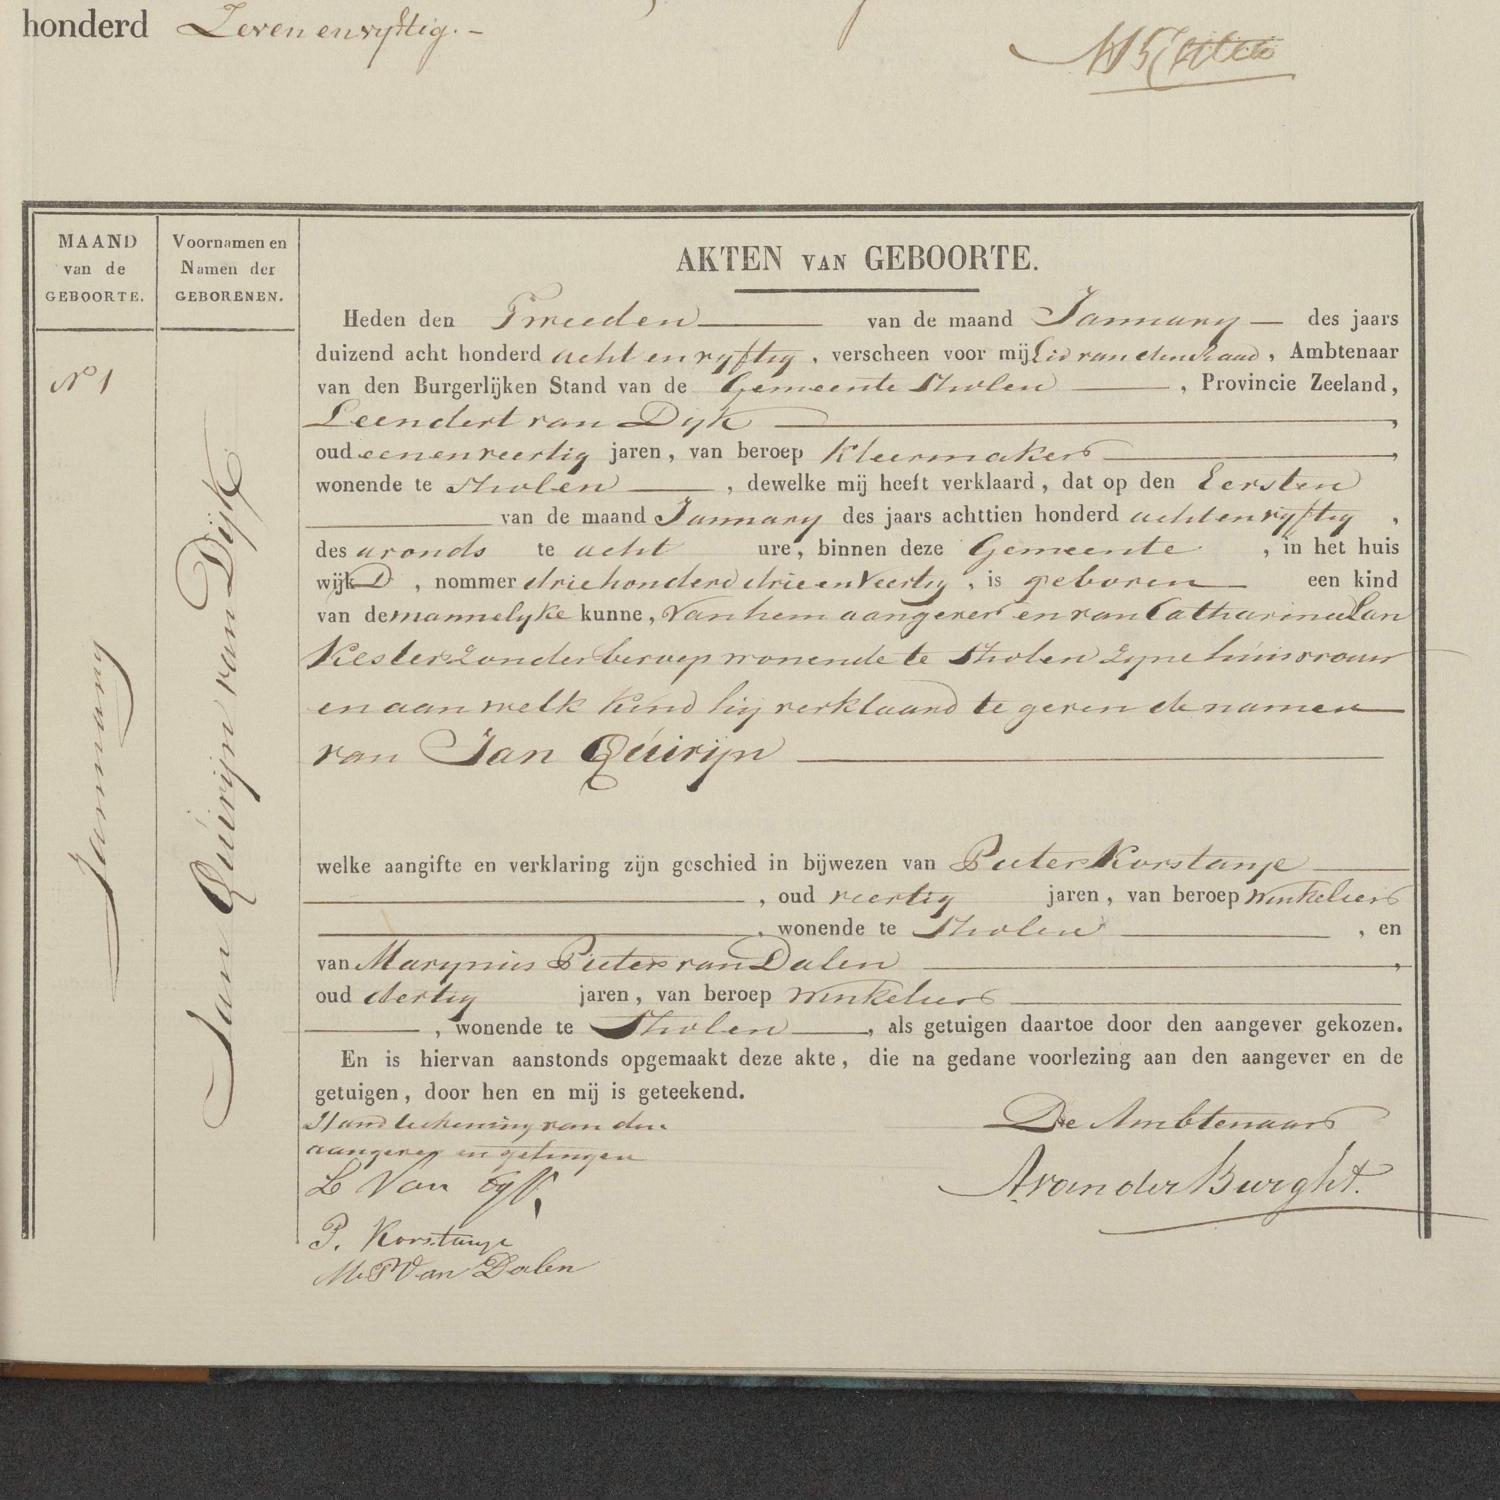 honderd Zeven en vyftig. -
MAAND
van de
GEBOORTE.
Voornamen en
Namen der
GEBORENEN.
AKTEN VAN GEBOORTE.
N° 1
January
Jan Quirijn van Dijk
Heden den Tweeden van de maand January des jaars
duizend acht honderd acht en vyftig, verscheen voor mij Lid van den Raad, Ambtenaar
van den Burgerlijken Stand van de Gemeente Tholen, Provincie Zeeland,
Leendert van Dyk
oud eenenveertig jaren, van beroep Kleermaker,
wonende te Tholen, dewelke mij heeft verklaard, dat op den Eersten
van de maand January des jaars achttien honderd achtenvyftig,
des avonds te acht ure, binnen deze Gemeente, in het huis
wijk D, nommer driehonderd drieenveertig, is geboren een kind
van de mannelyke kunne, van hem aangever en van Catharina Lan
Kester zonder beroep wonende te Tholen zyne huisvrouw
en aan welk kind hy verklaard te geven de namen
van Jan Quirijn
welke aangifte en verklaring zijn geschied in bijwezen van Pieter Korstanje
, oud veertig jaren, van beroep Winkelier
, wonende te Tholen, en
van Marynus Pieter van Dalen,
oud dertig jaren, van beroep Winkelier
, wonende te Tholen, als getuigen daartoe door den aangever gekozen.
En is hiervan aanstonds opgemaakt deze akte, die na gedane voorlezing aan den aangever en de
getuigen, door hen en mij is geteekend.
Handteekening van den
aangever en getuigen
L Van Dyk
P. Korstanje
M P Van Dalen
De Ambtenaar
A van der Burght.